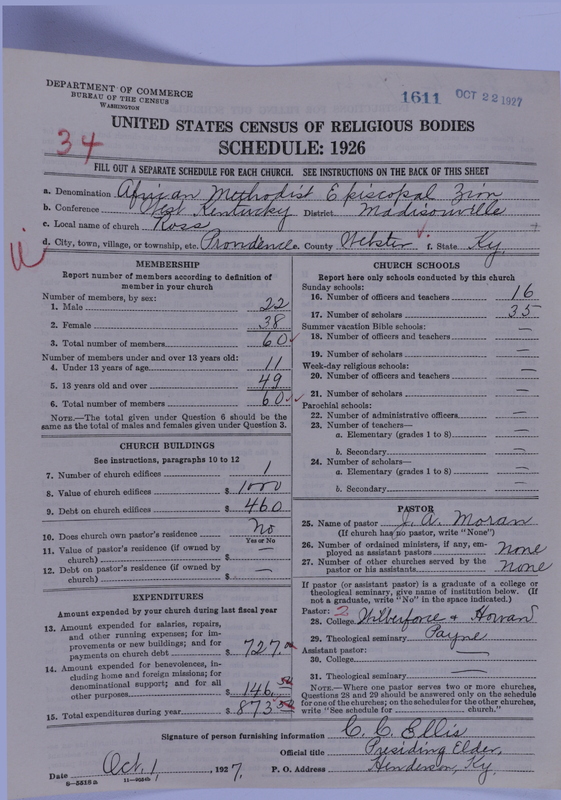 DEPARTMENT OF COMMERCE
BUREAU OF THE CENSUS
WASHINGTON
1611 OCT 22 1927
34
UNITED STATES CENSUS OF RELIGIOUS BODIES
SCHEDULE: 1926
FILL OUT A SEPARATE SCHEDULE FOR EACH CHURCH. SEE INSTRUCTIONS ON THE BACK OF THIS SHEET
a. Denomination African Methodist Episcopal Zion
b. Conference West Kentucky District Madisonville
c. Local name of church Ross
d. City, town, village, or township, etc. Providence e. County Webster f. State Ky.
MEMBERSHIP
Report number of members according to definition of
member in your church
Number of members, by sex:
1. Male 22
2. Female 38
3. Total number of members 60
Number of members under and over 13 years old:
4. Under 13 years of age 11
5. 13 years old and over 49
6. Total number of members 60
NOTE.—The total given under Question 6 should be the
same as the total of males and females given under Question 3.
CHURCH BUILDINGS
See instructions, paragraphs 10 to 12
7. Number of church edifices 1
8. Value of church edifices $ 1000
9. Debt on church edifices $ 460
10. Does church own pastor's residence No
Yes or No
11. Value of pastor's residence (if owned by
church) $ —
12. Debt on pastor's residence (if owned by
church) $ —
EXPENDITURES
Amount expended by your church during last fiscal year
13. Amount expended for salaries, repairs,
and other running expenses; for im-
provements or new buildings; and for
payments on church debt $ 727.
14. Amount expended for benevolences, in-
cluding home and foreign missions; for
denominational support; and for all
other purposes $ 146.
15. Total expenditures during year $ 873
CHURCH SCHOOLS
Report here only schools conducted by this church
Sunday schools:
16. Number of officers and teachers 16
17. Number of scholars 35
Summer vacation Bible schools:
18. Number of officers and teachers —
19. Number of scholars —
Week-day religious schools:
20. Number of officers and teachers —
21. Number of scholars —
Parochial schools:
22. Number of administrative officers —
23. Number of teachers—
a. Elementary (grades 1 to 8) —
b. Secondary —
24. Number of scholars—
a. Elementary (grades 1 to 8) —
b. Secondary —
PASTOR
25. Name of pastor J. A. Moran
(If church has no pastor, write "None")
26. Number of ordained ministers, if any, em-
ployed as assistant pastors None
27. Number of other churches served by the
pastor or his assistant None
If pastor (or assistant pastor) is a graduate of a college or
theological seminary, give name of institution below. (If
not a graduate, write "No" in the space indicated.)
Pastor: 2
28. College Wilberforce & Howard
29. Theological seminary Payne
Assistant pastor:
30. College —
31. Theological seminary —
NOTE.—Where one pastor serves two or more churches,
Questions 28 and 29 should be answered only on the schedule
for one of the churches; on the schedules for the other churches,
write "See schedule for church."
Signature of person furnishing information C. C. Ellis
Official title Presiding Elder,
Date Oct. 1, 1927. P. O. Address Henderson, Ky.
6-5518a